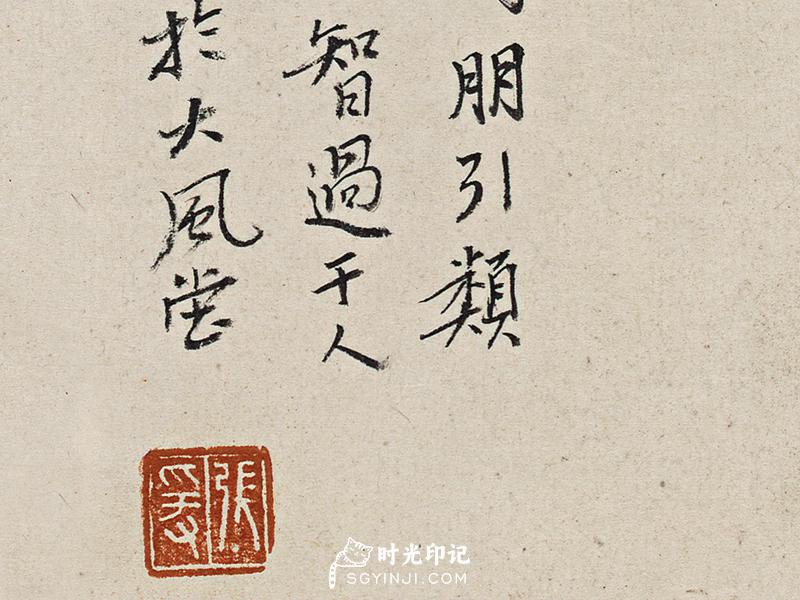 朋引類
智過于人
於大風堂
張爰
时光印记
SGYINJI.COM